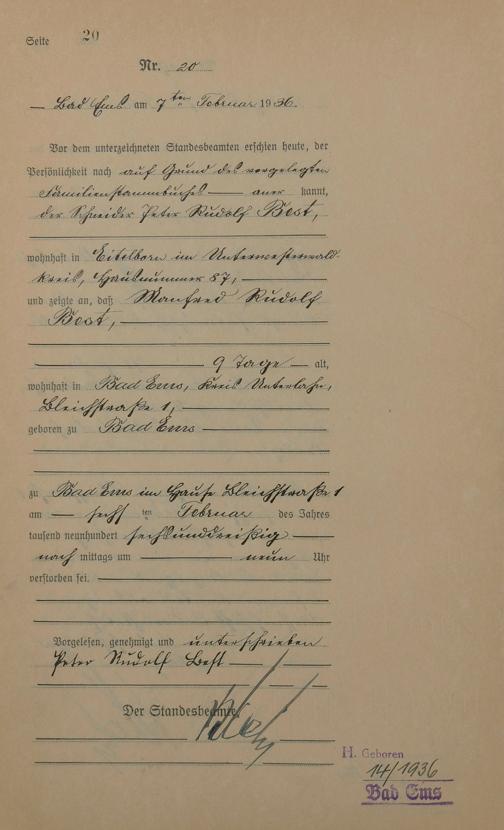 Seite 20
Nr. 20
Bad Ems am 7ten Februar 1936.
Vor dem unterzeichneten Standesbeamten erschien heute, der
Persönlichkeit nach auf Grund des vorgelegten
Familienstammbuches aner kannt,
der Schneider Peter Rudolf Best,
wohnhaft in Eitelborn im Unterwesterwald-
kreis, Hausnummer 87,
und zeigte an, daß Manfred Rudolf
Best,
9 Tage alt,
wohnhaft in Bad Ems, Kreis Unterlahn,
Bleichstraße 1,
geboren zu Bad Ems
zu Bad Ems im Hause Bleichstraße 1
am sechsten Februar des Jahres
tausend neunhundert sechsunddreißig
nach mittags um neun Uhr
verstorben sei.
Vorgelesen, genehmigt und unterschrieben
Peter Rudolf Best
Der Standesbeamte.
H. Geboren
14/1936
Bad Ems